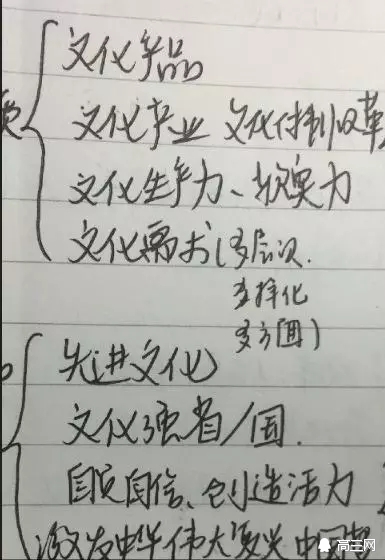 文化产品
文化产业 文化体制改革
文化生产力、软实力
文化需求(多层次.
多样化
多方面)
先进文化
文化强省/国.
自觉自信、创造活力
激发中华伟大复兴 中国
高三网